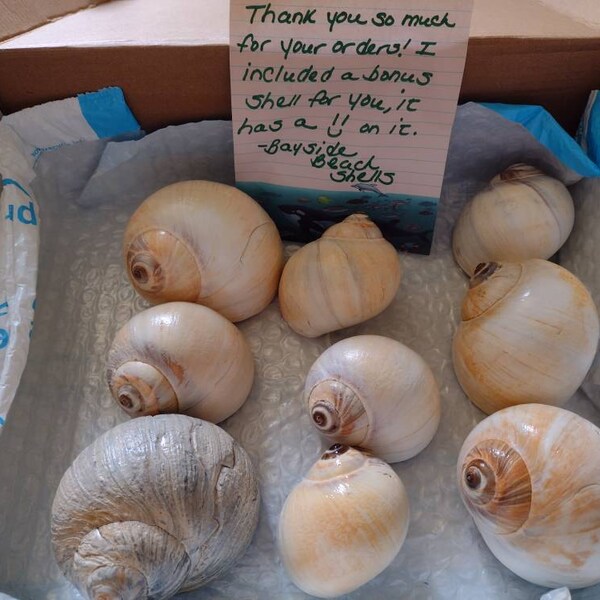 Thank you so much
for your orders! I
included a bonus
shell for you, it
has a !! on it.
-Bayside
Beach
Shells